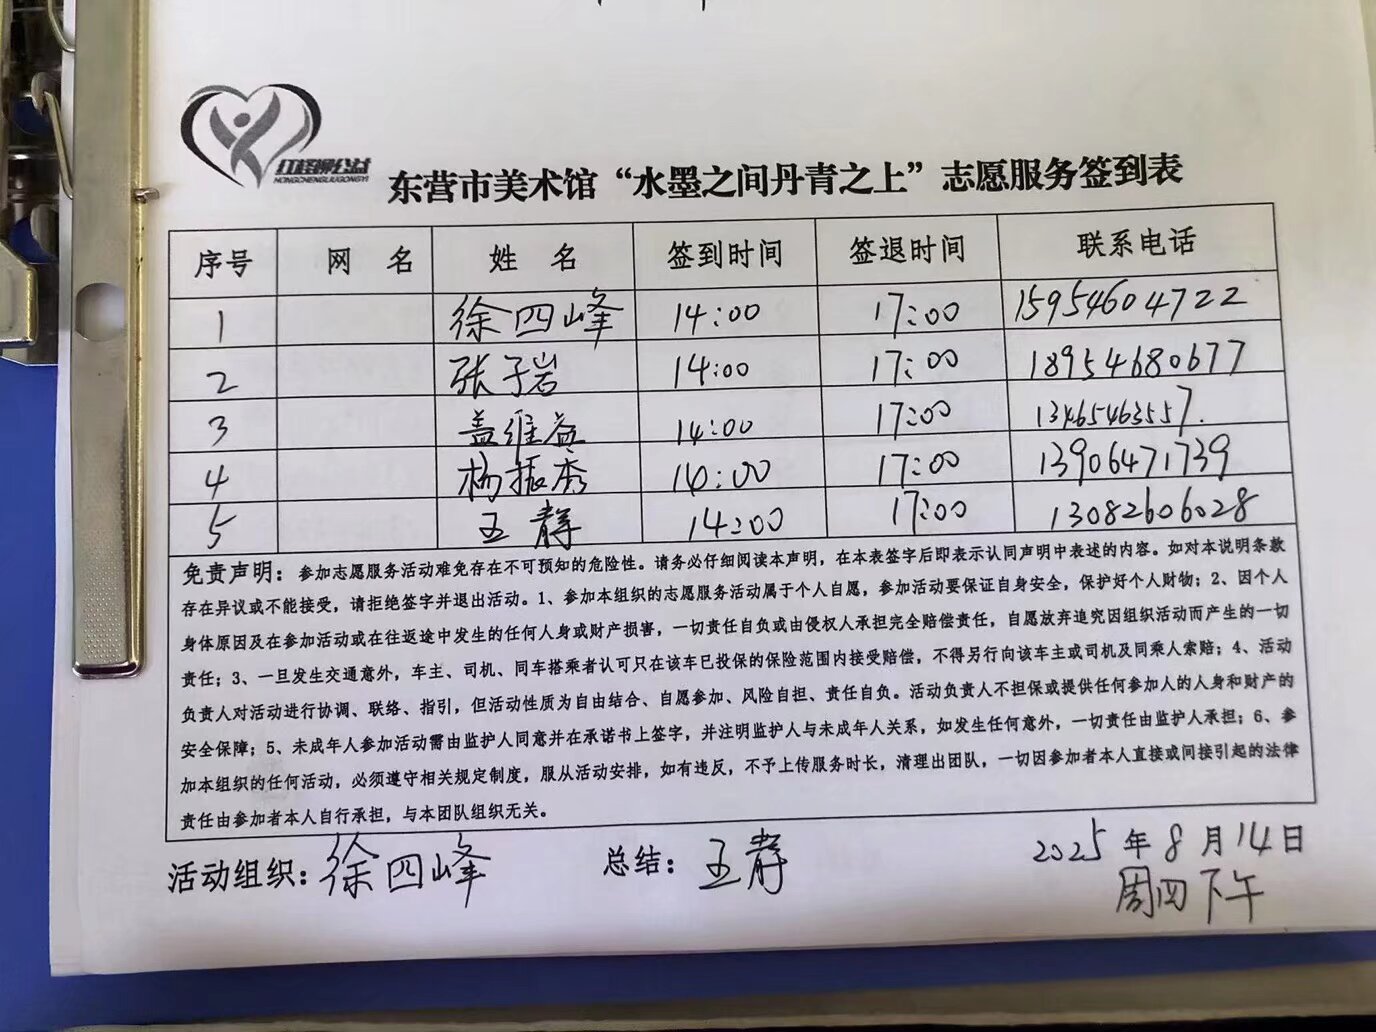 红橙柳公益
HONGCHENGLIUGONGYI
东营市美术馆“水墨之间丹青之上”志愿服务签到表
序号 网 名 姓 名 签到时间 签退时间 联系电话
1 徐四峰 14:00 17:00 15954604722
2 张子岩 14:00 17:00 18954680677
3 盖维益 14:00 17:00 13465463557.
4 杨振秀 14:00 17:00 13906471739
5 王静 14:00 17:00 13082606028
免责声明：参加志愿服务活动难免存在不可预知的危险性。请务必仔细阅读本声明，在本表签字后即表示认同声明中表述的内容。如对本说明条款
存在异议或不能接受，请拒绝签字并退出活动。1、参加本组织的志愿服务活动属于个人自愿，参加活动要保证自身安全，保护好个人财物；2、因个人
身体原因及在参加活动或在往返途中发生的任何人身或财产损害，一切责任自负或由侵权人承担完全赔偿责任，自愿放弃追究因组织活动而产生的一切
责任；3、一旦发生交通意外，车主、司机、同车搭乘者认可只在该车已投保的保险范围内接受赔偿，不得另行向该车主或司机及同乘人索赔；4、活动
负责人对活动进行协调、联络、指引，但活动性质为自由结合、自愿参加、风险自担、责任自负。活动负责人不担保或提供任何参加人的人身和财产的
安全保障；5、未成年人参加活动需由监护人同意并在承诺书上签字，并注明监护人与未成年人关系，如发生任何意外，一切责任由监护人承担；6、参
加本组织的任何活动，必须遵守相关规定制度，服从活动安排，如有违反，不予上传服务时长，清理出团队，一切因参加者本人直接或间接引起的法律
责任由参加者本人自行承担，与本团队组织无关。
活动组织：徐四峰 总结：王静 2025年8月14日
周四下午